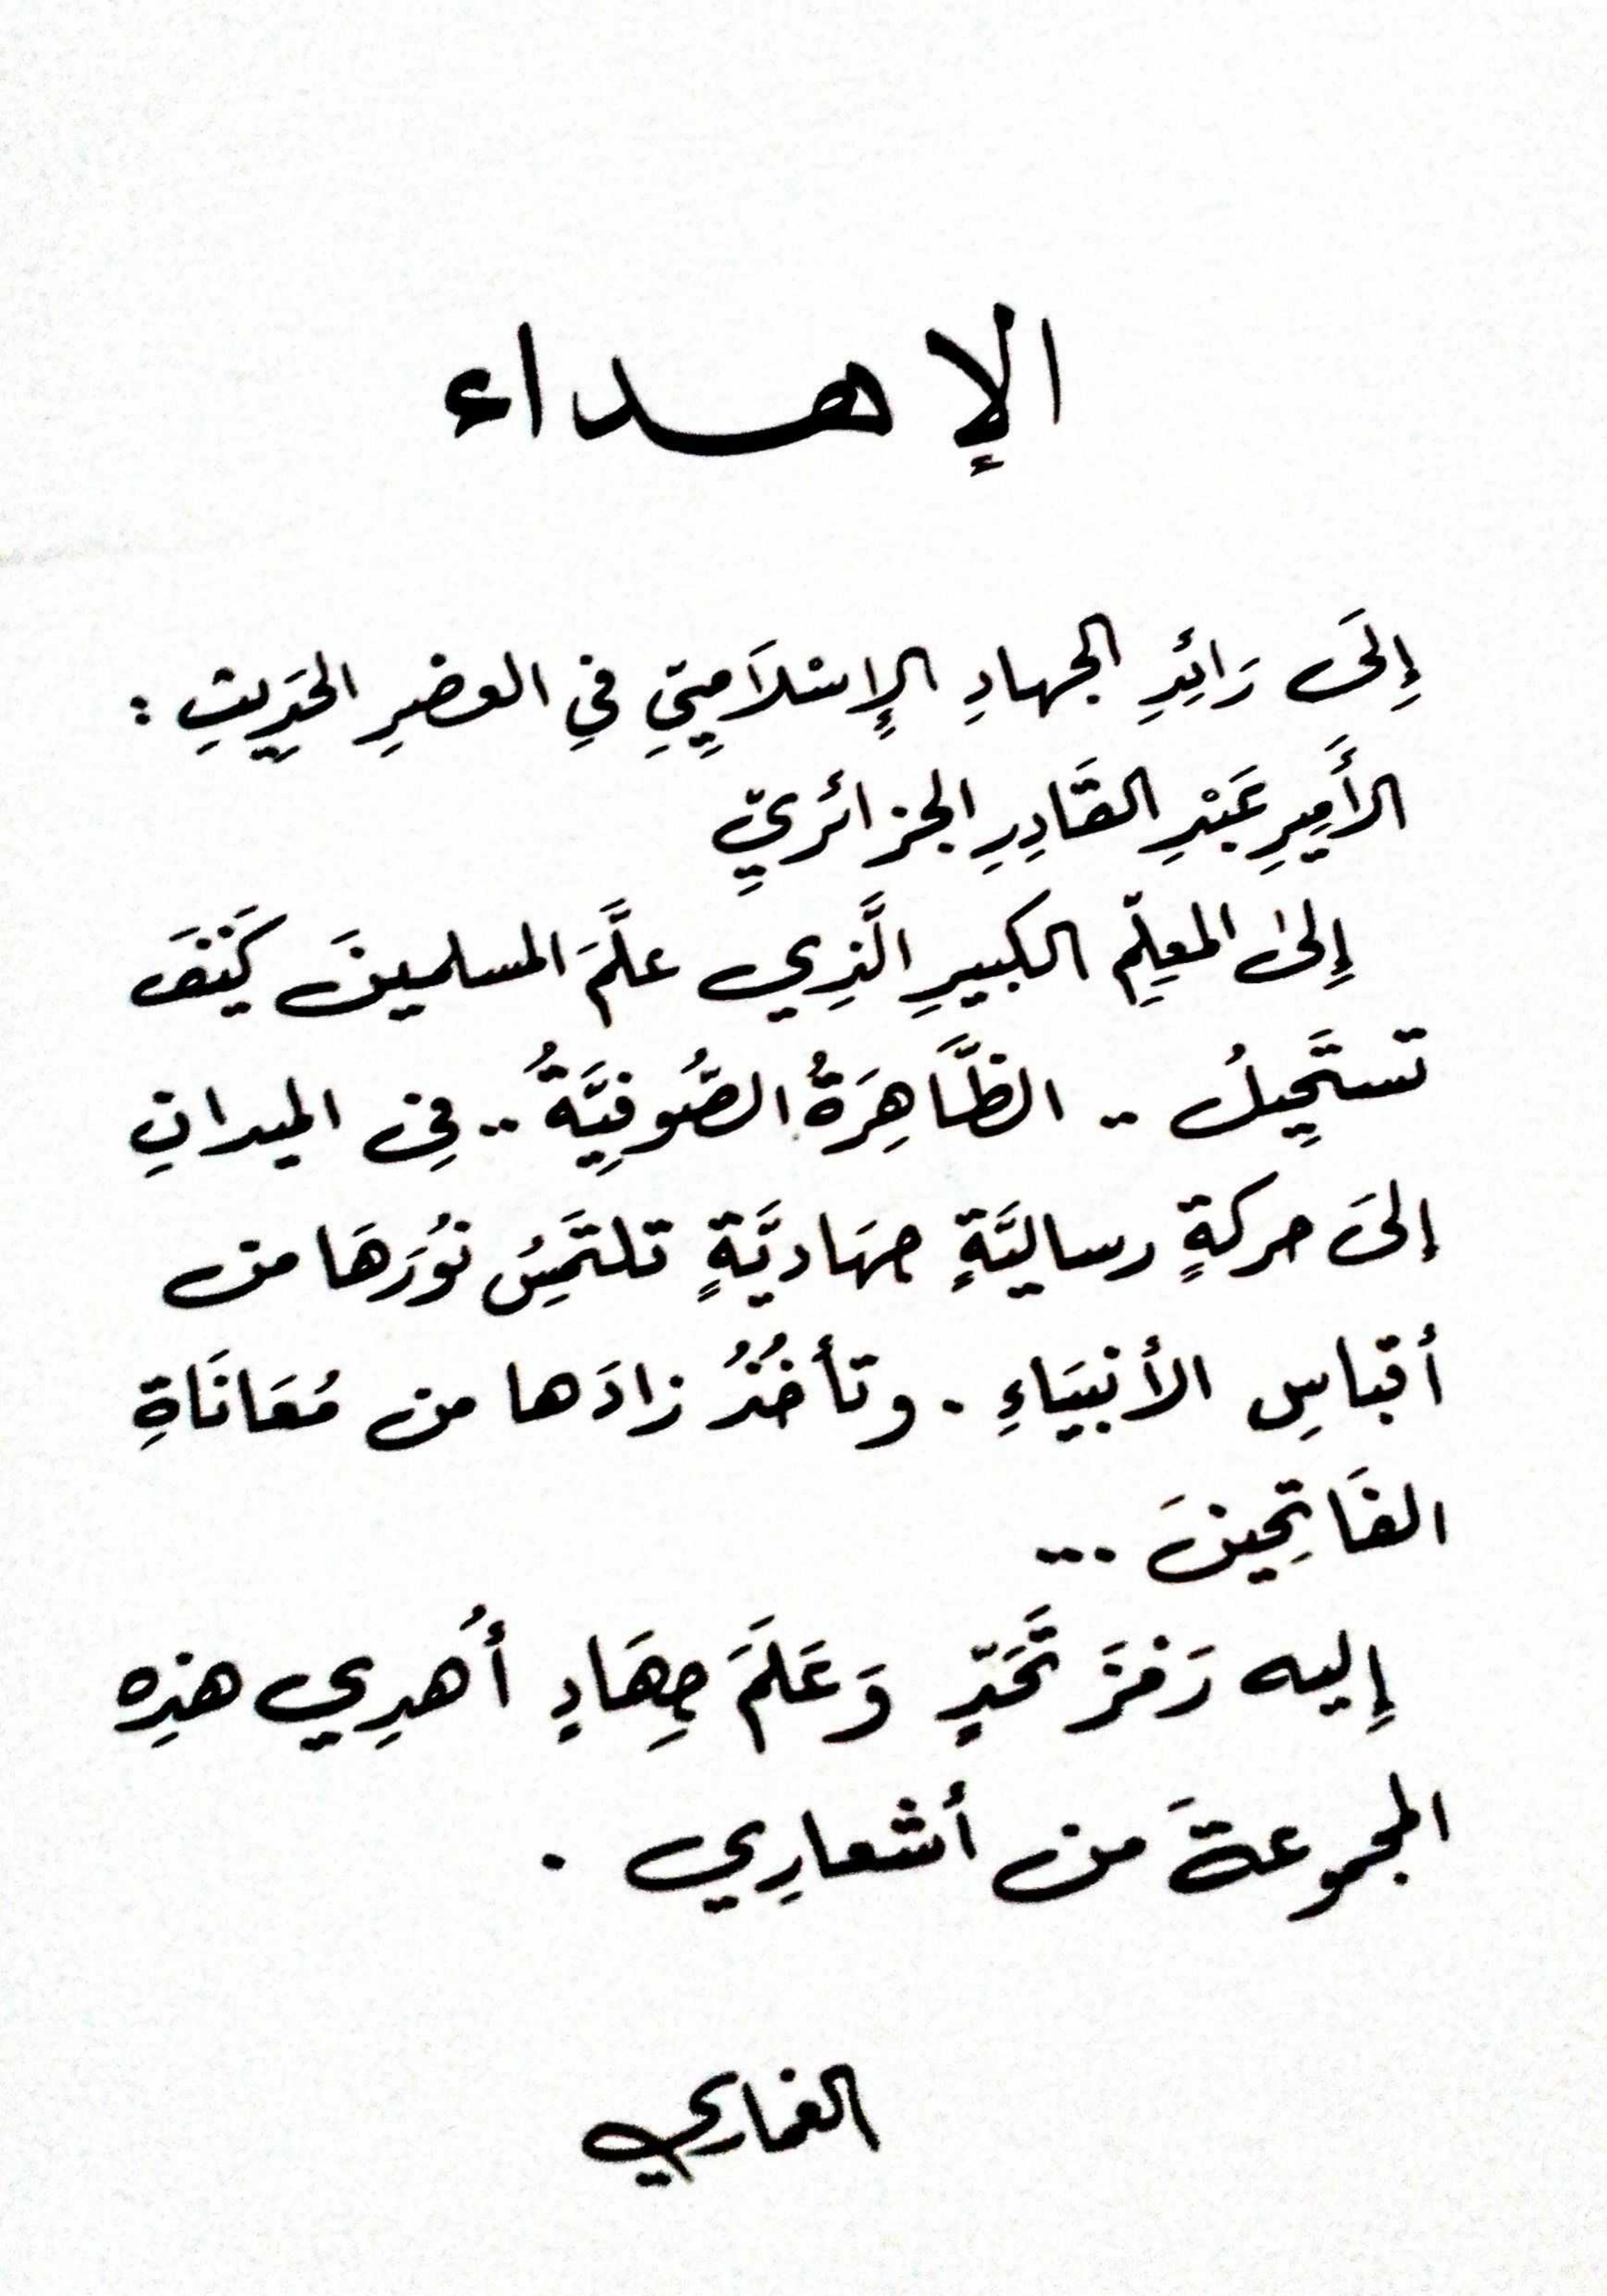 الإهداء
إِلَى رَائِدِ الجهادِ الإسْلَامِيِّ فِي العصْرِ الحَدِيثِ :
الأَمِيرِ عَبْدِ القَادِرِ الجزائريِّ
إِلى المعلِّمِ الكبيرِ الَّذِي علَّمَ المسلمينَ كَيْفَ
تستَحِيلُ .. الظَّاهِرَةُ الصُّوفِيَّةُ .. فِي الميدانِ
إلىَ حركةٍ رساليَّةٍ جهَاديَّةٍ تلتَمِسُ نُورَهَا من
أقباسِ الأنبيَاءِ . وتأخُذُ زادَها من مُعَانَاةِ
الفَاتِحِينَ ...
إِليه رَمْزَ تَحَدٍّ وَعَلَمَ جِهَادٍ أُهدِي هذِه
المجموعةَ من أشعارِي .
الغماري